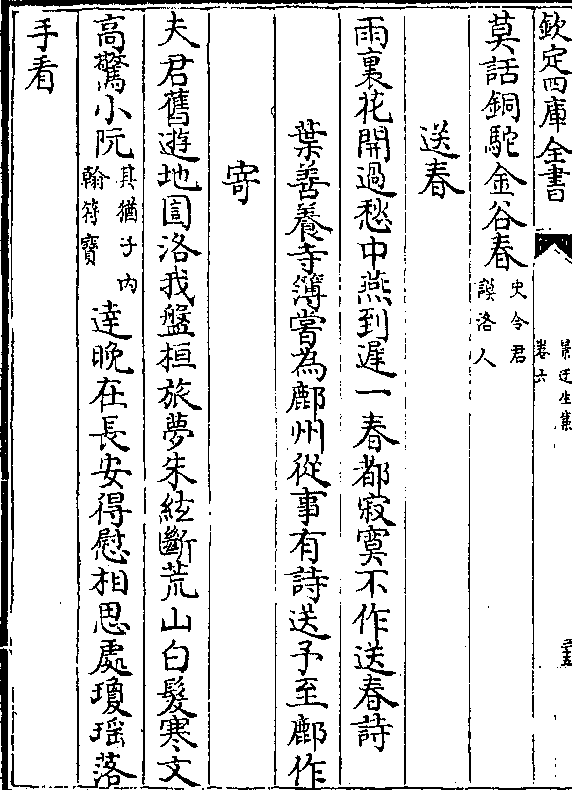 欽定四庫全書
景迂生集
卷六
莫話銅駝金谷春史令君
謨洛人
送春
雨裏花開過愁中燕到遲一春都寂寞不作送春詩
葉善養寺簿嘗為鄜州從事有詩送予至鄜作
寄
夫君舊遊地圁洛我盤桓旅夢朱絃斷荒山白髮寒文
高驚小阮其猶子内
翰符寶達晚在長安得慰相思處瓊瑶落
手看